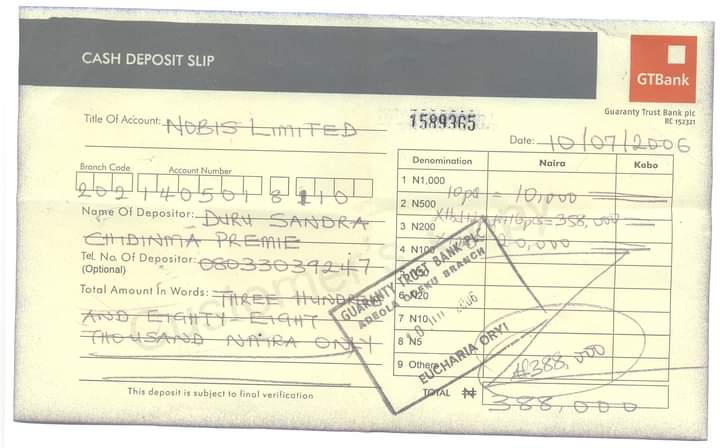 CASH DEPOSIT SLIP
GTBank
Guaranty Trust Bank plc
RC 152321
Title Of Account: NOBIS LIMITED
1589365
Date: 10/07/2006
Branch Code Account Number
202 140501 8 110
Name Of Depositor: DURU SANDRA
CHIDINMA PREMIE
Tel. No. Of Depositor: 08033039247
(Optional)
Total Amount In Words: THREE HUNDRED
AND EIGHTY EIGHT
THOUSAND NAIRA ONLY
This deposit is subject to final verification
Denomination Naira Kobo
1 N1,000
10ps = 10,000
2 N500
= 358,000
3 N200
4 N100 20,000
6 N20
7 N10
8 N5
9 Others ₦388,000
TOTAL ₦ 388,000
GUARANTY TRUST BANK PLC
ADEOLA ODEKU BRANCH
EUCHARIA ORYI